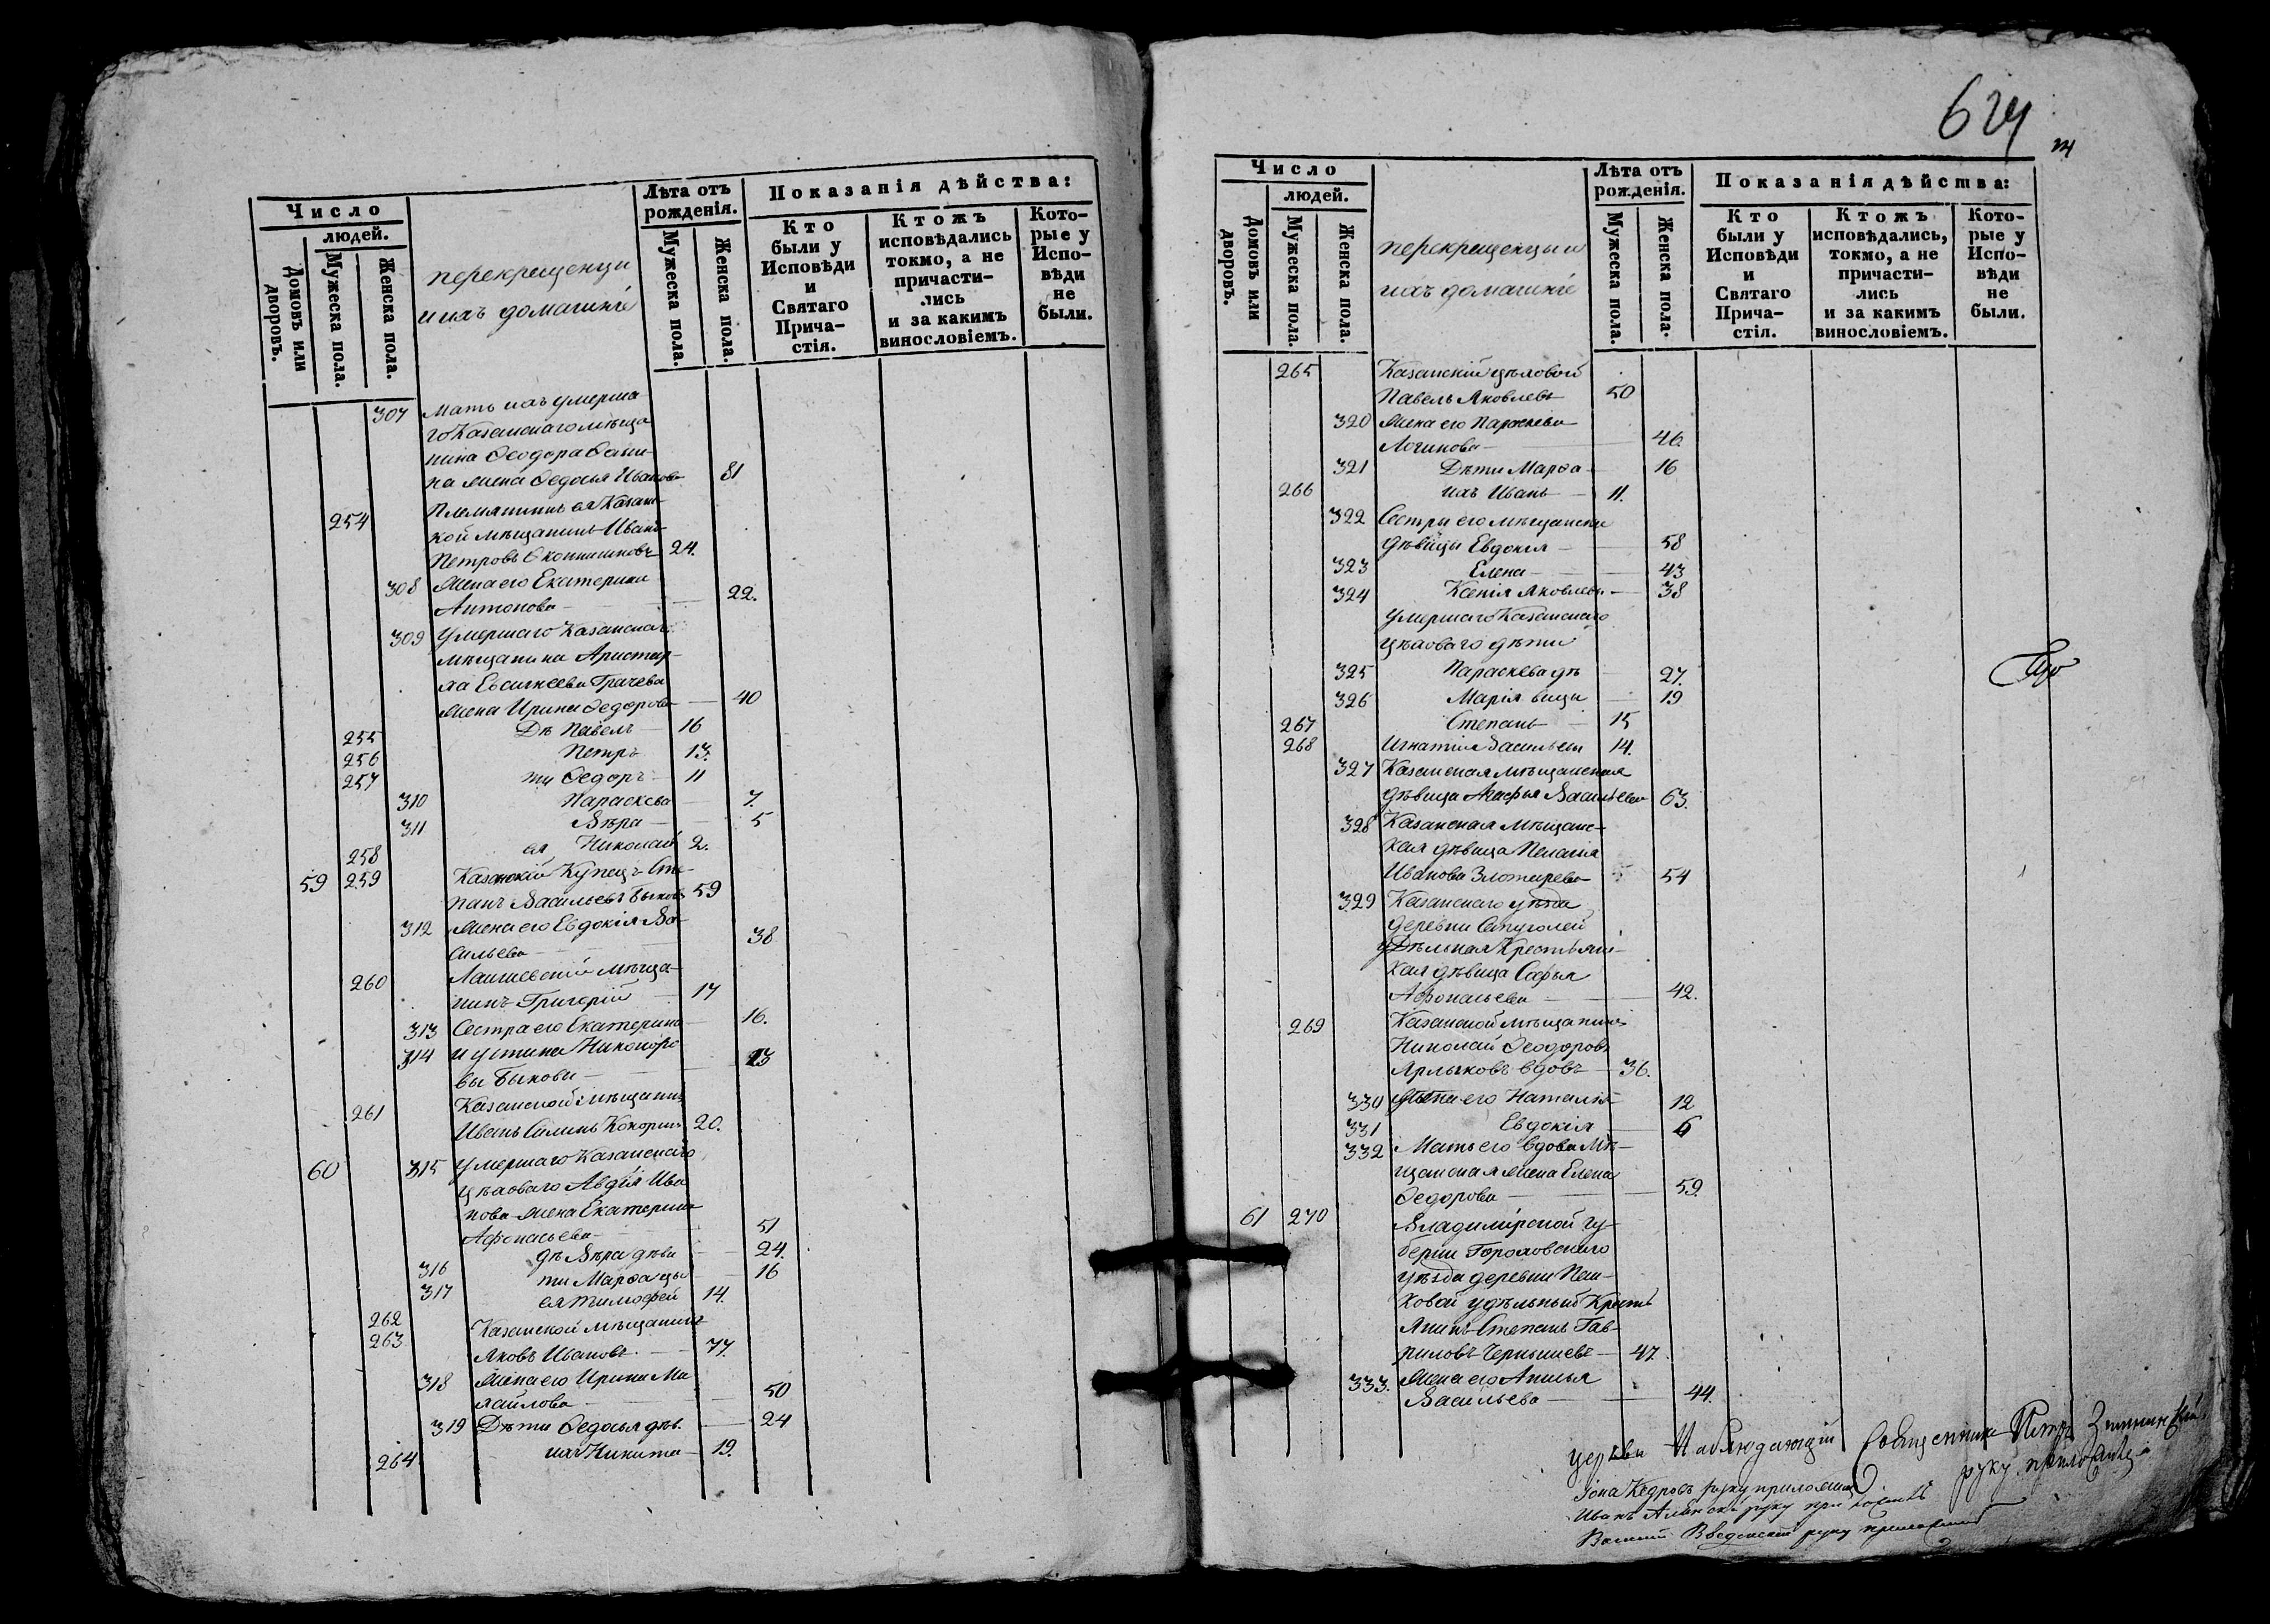 Число
людей.
Домовъ или дворовъ.
Мужеска пола.
Женска пола.
перекрещенци
и ихъ домашніе
Лѣта отъ рожденія.
Мужеска пола.
Женска пола.
Показанія дѣйства:
Кто были у Исповѣди и Святаго Прича- стія.
Ктожъ исповѣдались токмо, а не причасти- лись и за какимъ винословіемъ.
Кото- рые у Испо- вѣди не были.
307 Мать ихъ умерша-
го Казанскаго мѣща
нина Ѳеодора
на жена Ѳедосья Иванова 81
254 Племянникъ ея Казан-
кой мѣщанинъ Иванъ
Петровъ 24.
308 Жена его Екатерина
Антонова — 22.
309 Умершаго Казанскаго
мѣщанина Аристар-
ха Евсигнеева Грачева
жена Ирина Ѳедорова — 40
255 Дѣ Павелъ — 16
256 Петръ 13.
257 ти Ѳедоръ — 11
310 Параскева — 7.
311 Вѣра — 5
258 ея Николай 2.
59 259 Казанскій Купецъ Сте-
панъ Васильевъ Быковъ 59
312 Жена его Евдокія Ва-
сильева — 38
260 Лаишевскій мѣща-
нинъ Григорій — 17
313 Сестра его Екатерина — 16.
314 и Устина Никоноро
вы Быковы — 13
261 Казанской мѣщанинъ
Иванъ Силинъ Кокоринъ 20.
60 315 Умершаго Казанскаго
цѣховаго Авдія Ива
нова жена Екатерина
Афонасьева — 51
316 дѣ Вѣра дѣви — 24.
317 ти Марѳа цы — 16
262 ея Тимоѳей 14.
263 Казанской мѣщанинъ
Яковъ Ивановъ — 77.
318 Жена его Ирина Ми
хайлова — 50
319 Дѣти Ѳедосья дѣв. — 24
264 ихъ Никита — 19.
624
Число
людей.
Домовъ или дворовъ.
Мужеска пола.
Женска пола.
перекрещенцы и
ихъ домашніе
Лѣта отъ рожденія.
Мужеска пола.
Женска пола.
Показанія дѣйства:
Кто были у Исповѣди и Святаго Прича- стія.
Ктожъ исповѣдались, токмо, а не причасти- лись и за какимъ винословіемъ.
Кото- рые у Испо- вѣди не были.
265 Казанскій цѣховой
Павелъ Яковлевъ 50
320 Жена его Параскева
Логинова — 46.
321 Дѣти Марѳа — 16
266 ихъ Иванъ — 11.
322 Сестры его мѣщански
дѣвицы Евдокія — 58
323 Елена — 43
324 Ксенія Яковлевы — 38
Умершаго Казанскаго
цѣховаго дѣти
325 Параскева дѣ — 27.
326 Марія вицы — 19
267 Степанъ — 15
268 Игнатій Васильевы 14.
327 Казанская мѣщанская
дѣвица Агафья Васильева 63.
328 Казанская мѣщанс-
кая дѣвица Пелагія
Иванова 54
329 Казанскаго уѣзда
деревни
удѣльная Крестьянс-
кая дѣвица Софья
Афонасьева — 42.
269 Казанской мѣщанинъ
Николай Ѳеодоровъ
Ярлыковъ вдовъ — 36.
330 Дѣти его Наталія 12
331 Евдокія — 6
332 Мать его вдова Мѣ-
щанская жена Елена
Ѳедорова — 59.
61 270 Владимірской гу-
берніи Гороховскаго
уѣзда деревни Пеш-
ковой удѣльный Кресть
янинъ Степанъ Гав-
риловъ Чернышевъ — 47.
333. Жена его Анисья
Васильева — 44.
церкви Наблюдающій Священникъ Петръ
руку приложилъ
Іона Кедровъ руку приложилъ
Иванъ руку приложилъ
Василій Введенскій руку приложилъ